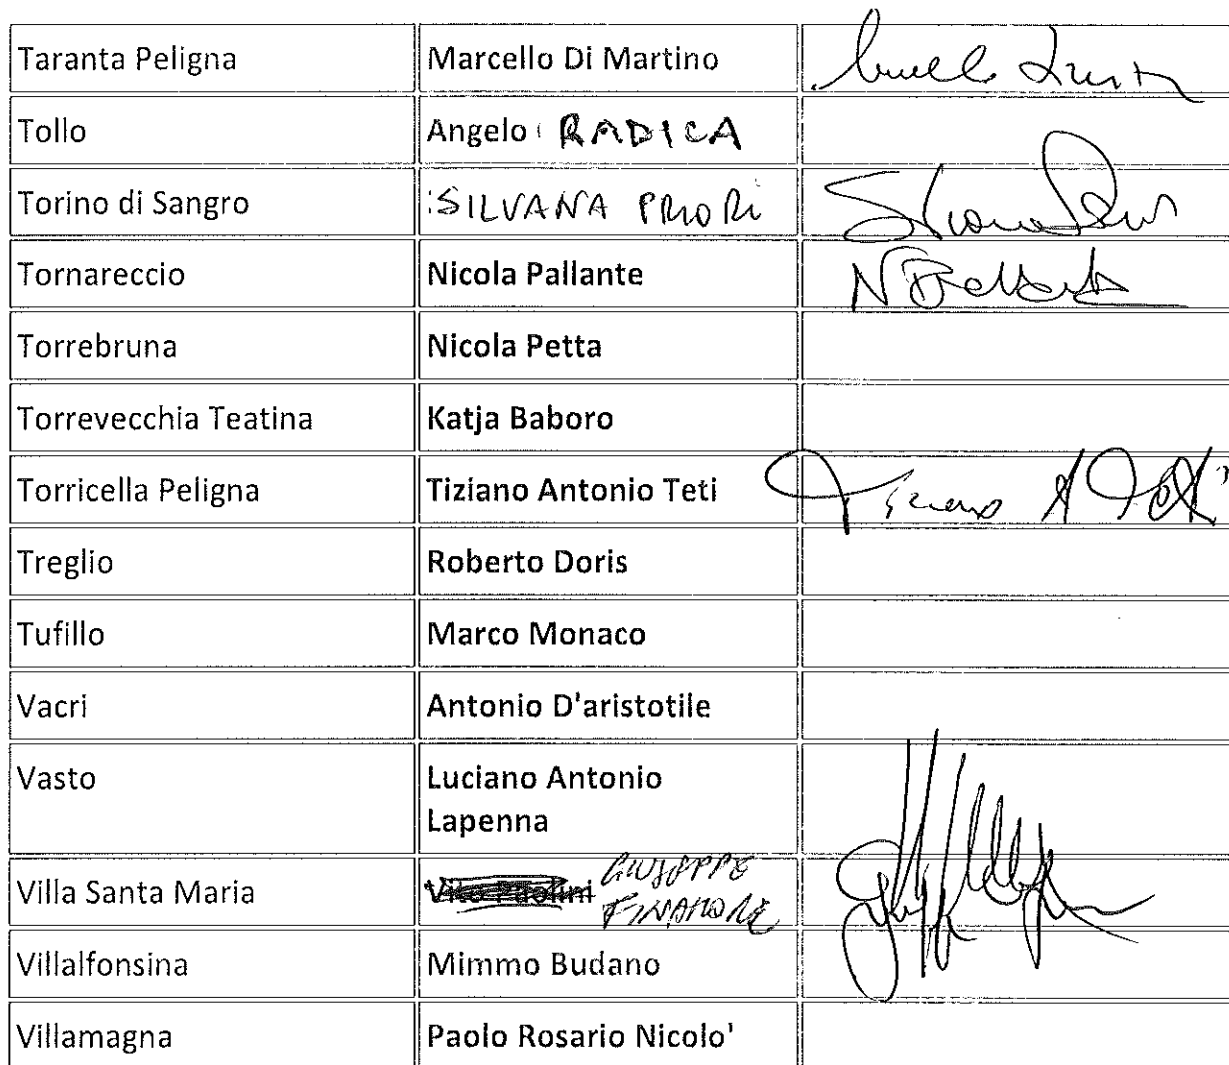 Taranta Peligna Marcello Di Martino
Tollo Angelo RADICA
Torino di Sangro SILVANA PRIORI
Tornareccio Nicola Pallante
Torrebruna Nicola Petta
Torrevecchia Teatina Katja Baboro
Torricella Peligna Tiziano Antonio Teti
Treglio Roberto Doris
Tufillo Marco Monaco
Vacri Antonio D'aristotile
Vasto Luciano Antonio
Lapenna
Villa Santa Maria Vito Paolini GIUSEPPE
FINAMORE
Villalfonsina Mimmo Budano
Villamagna Paolo Rosario Nicolo'